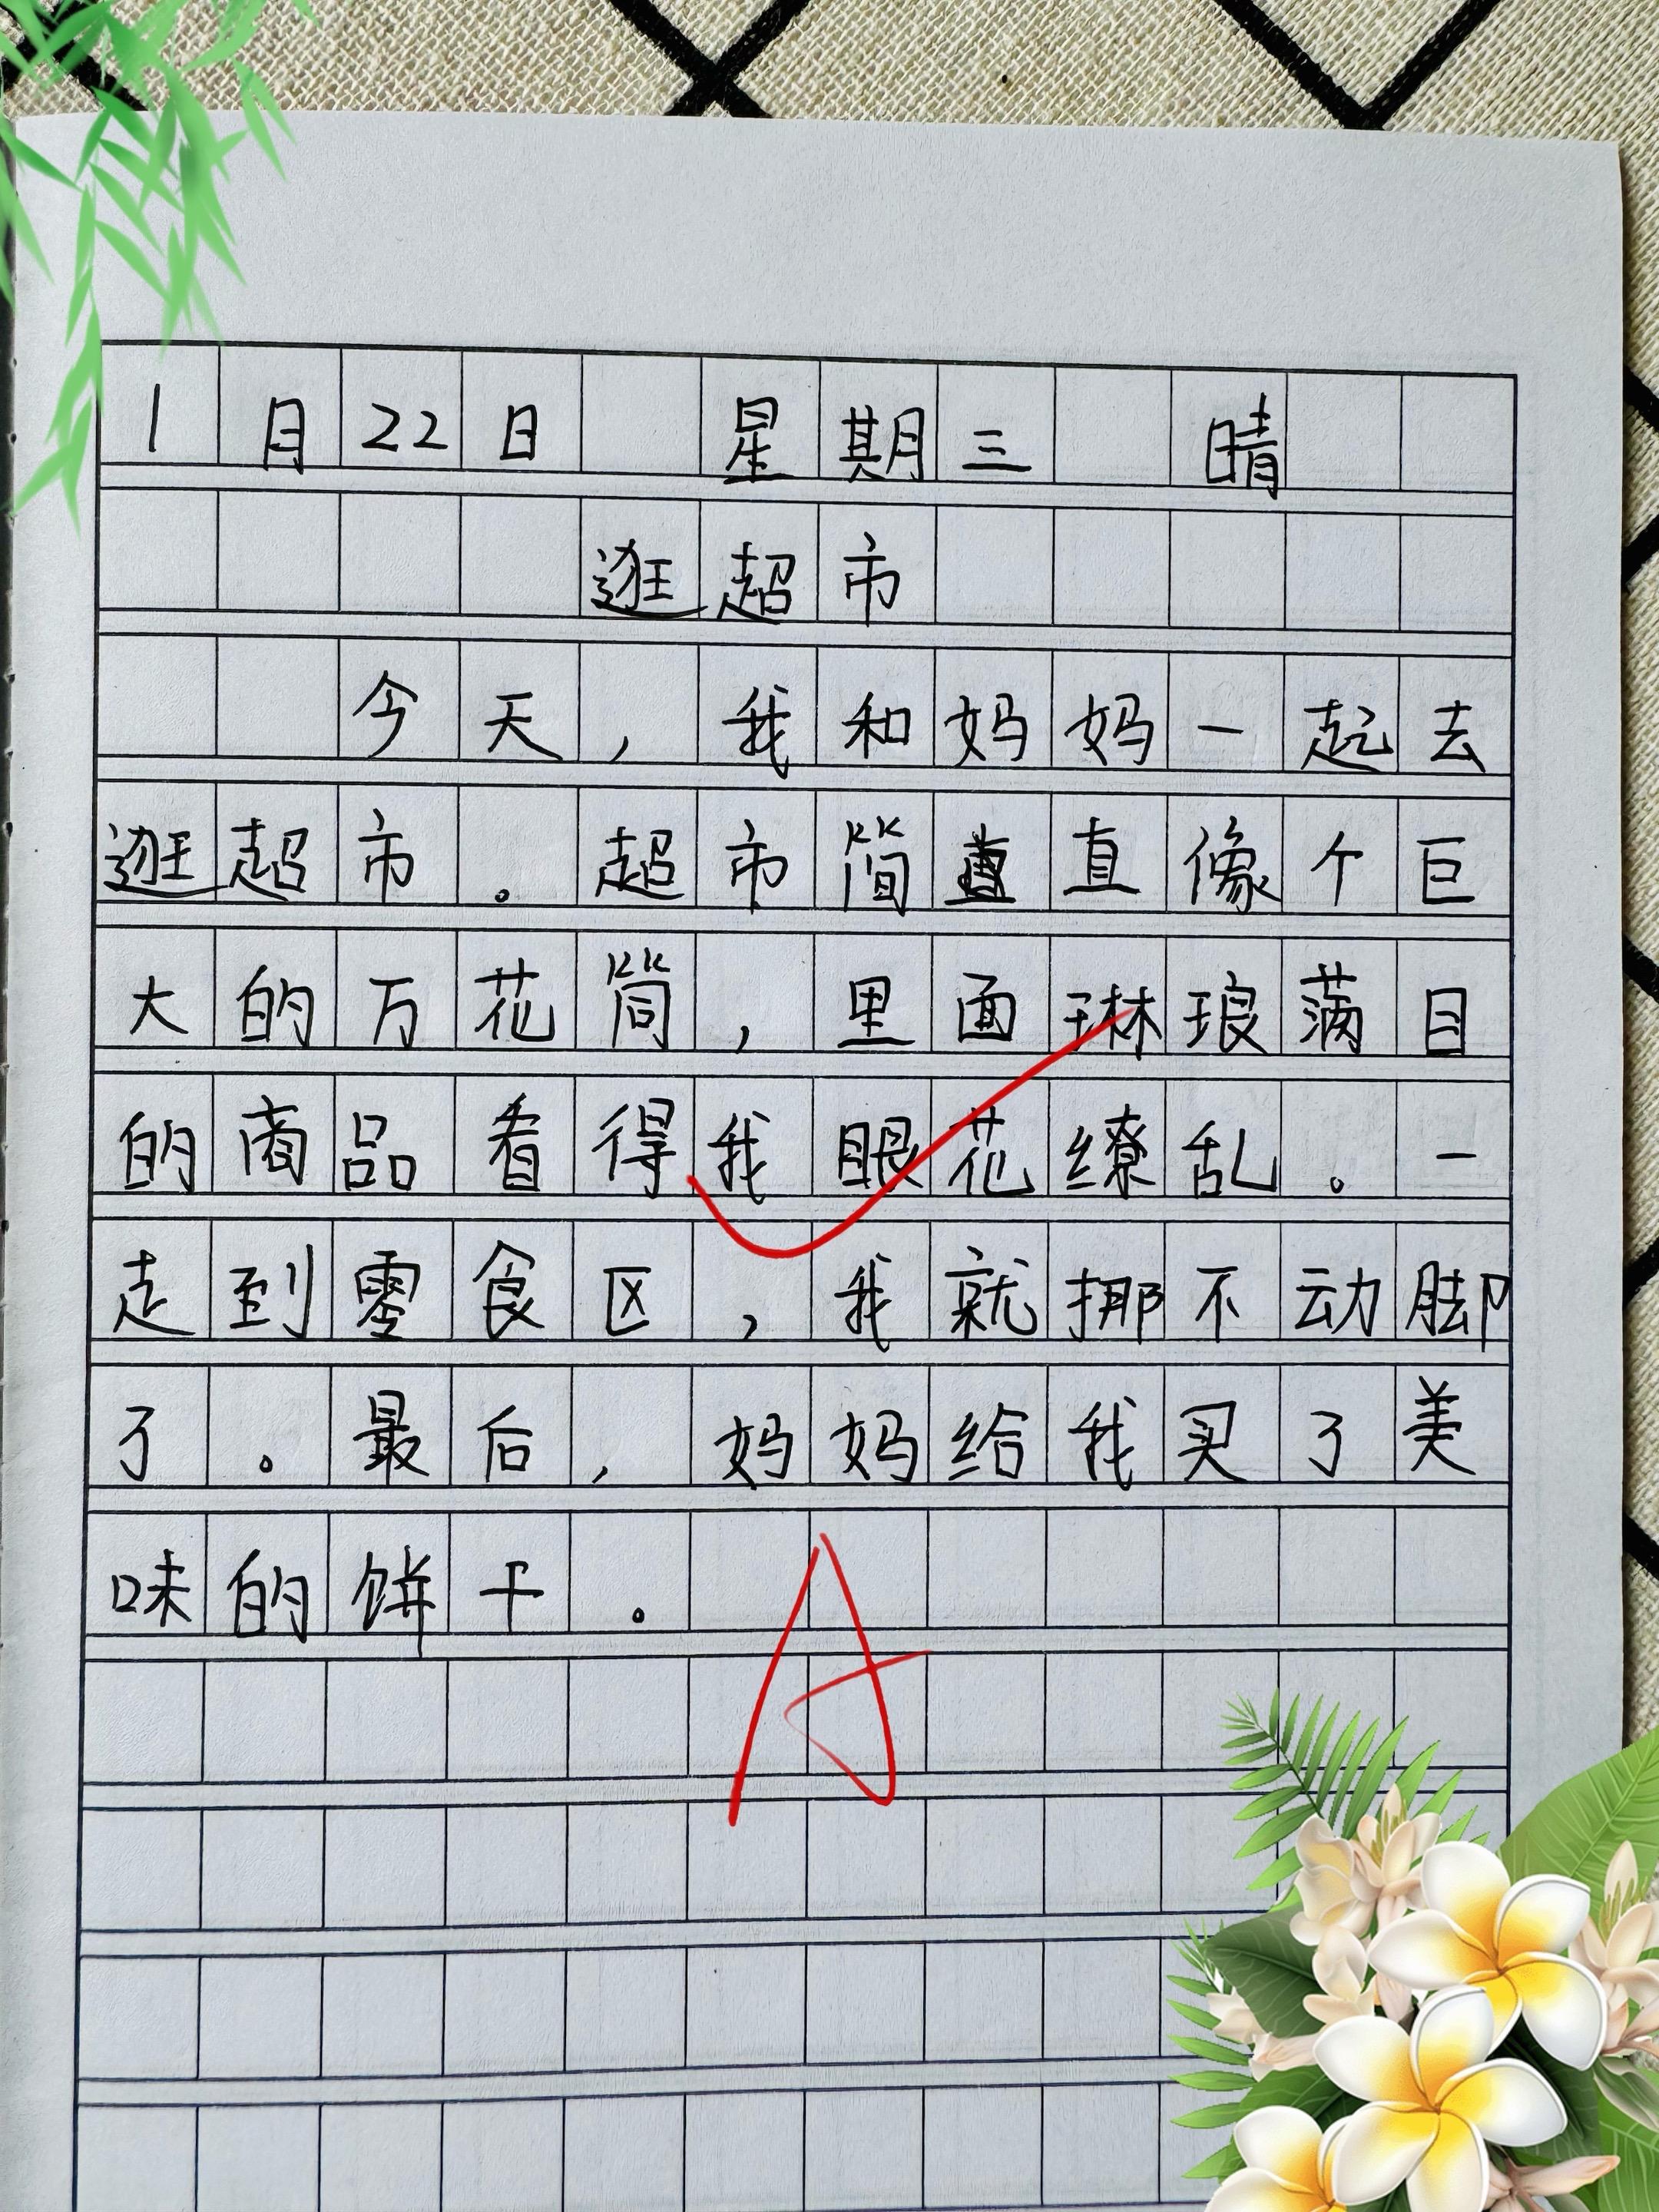 1月22日 星期三 晴
逛超市
今天,我和妈妈一起去
逛超市。超市简直像个巨
大的万花筒,里面琳琅满目
的商品看得我眼花缭乱。一
走到零食区,我就挪不动脚
了。最后,妈妈给我买了美
味的饼干。
A